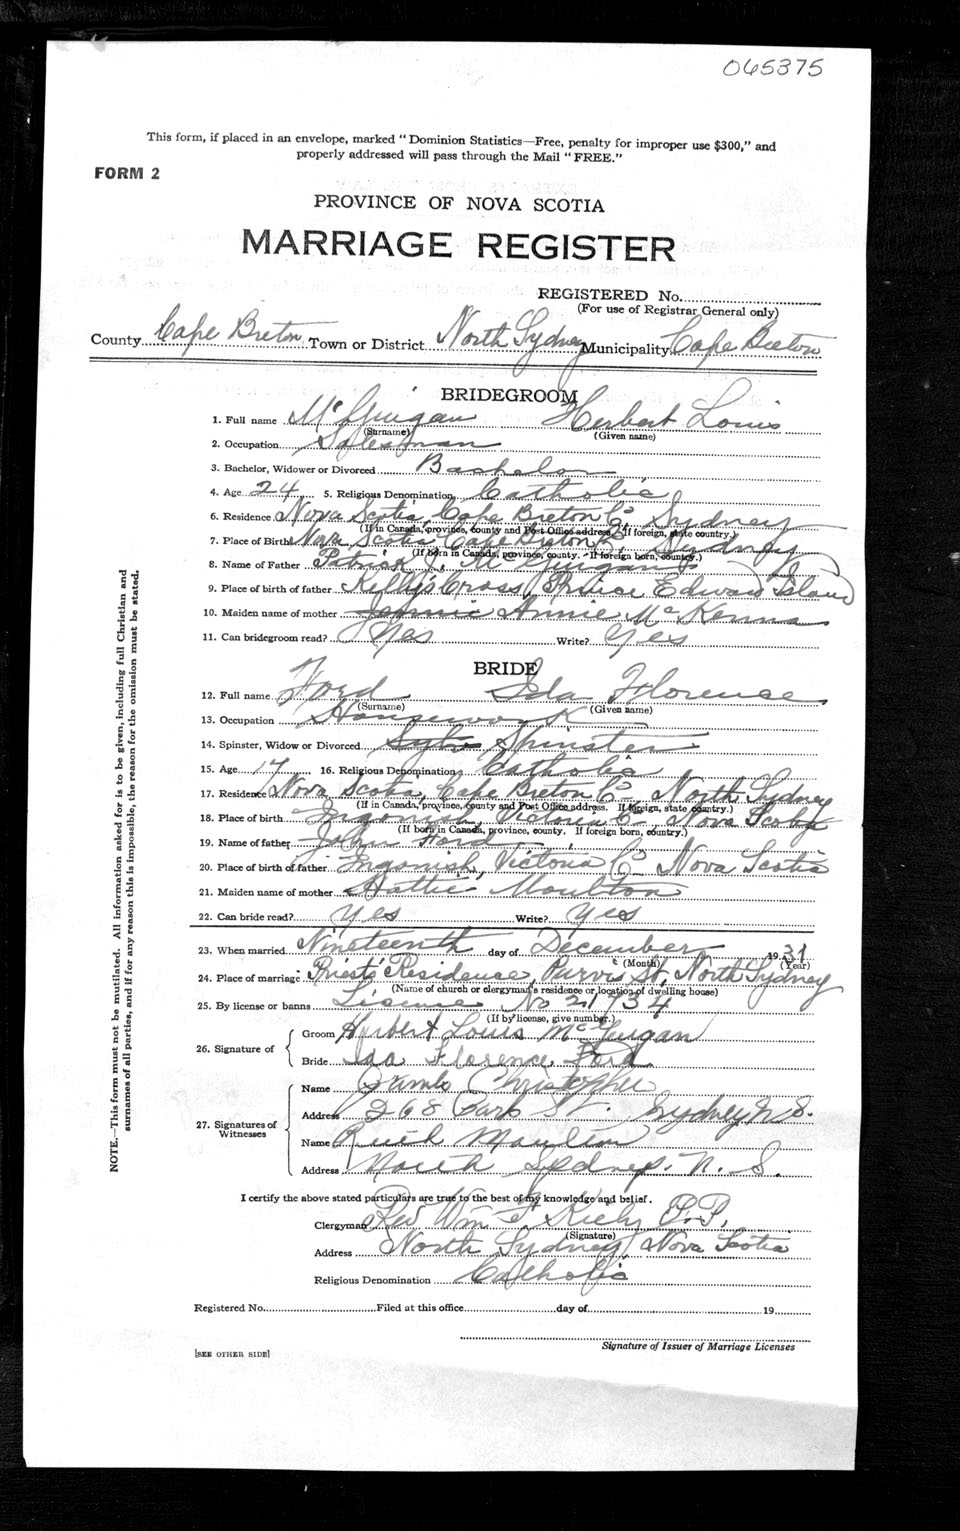 065375
This form, if placed in an envelope, marked "Dominion Statistics—Free, penalty for improper use $300," and
properly addressed will pass through the Mail "FREE."
FORM 2
PROVINCE OF NOVA SCOTIA
MARRIAGE REGISTER
REGISTERED No.
(For use of Registrar General only)
County Cape Breton Town or District North Sydney Municipality Cape Breton
BRIDEGROOM
1. Full name McGuigan Herbert Louis
(Surname) (Given name)
2. Occupation Salesman
3. Bachelor, Widower or Divorced Bachelor
4. Age 24 5. Religious Denomination Catholic
6. Residence Nova Scotia, Cape Breton Co. Sydney
(If in Canada, province, county and Post Office address. If foreign, state country.)
7. Place of Birth Nova Scotia Cape Breton Co. Sydney
(If born in Canada, province, county. If foreign born, country.)
8. Name of Father Patrick McGuigan
9. Place of birth of father Kelly's Cross, Prince Edward Island
10. Maiden name of mother Annie McKenna
11. Can bridegroom read? Yes Write? Yes
BRIDE
12. Full name Ford Ida Florence
(Surname) (Given name)
13. Occupation Housework
14. Spinster, Widow or Divorced Spinster
15. Age 17 16. Religious Denomination Catholic
17. Residence Nova Scotia, Cape Breton Co. North Sydney
(If in Canada, province, county and Post Office address. If foreign, state country.)
18. Place of birth Ingonish, Victoria Co. Nova Scotia
(If born in Canada, province, county. If foreign born, country.)
19. Name of father John Ford
20. Place of birth of father Ingonish, Victoria Co. Nova Scotia
21. Maiden name of mother Hattie Moulton
22. Can bride read? Yes Write? Yes
23. When married Nineteenth day of December 1931
(Month) (Year)
24. Place of marriage Priest's Residence, Purvis St, North Sydney
(Name of church or clergyman's residence or location of dwelling house)
25. By license or banns License No 21734
(If by license, give number.)
26. Signature of
Groom Herbert Louis McGuigan
Bride Ida Florence Ford
27. Signatures of Witnesses
Name James Christopher
Address 268 Park St. Sydney N.S.
Name Ruth Moulton
Address North Sydney. N. S.
I certify the above stated particulars are true to the best of my knowledge and belief.
Clergyman Rev Wm F. Kiely P.P.
(Signature)
Address North Sydney, Nova Scotia
Religious Denomination Catholic
Registered No. Filed at this office day of 19
Signature of Issuer of Marriage Licenses
[SEE OTHER SIDE]
NOTE.—This form must not be mutilated. All information asked for is to be given, including full Christian and
surnames of all parties, and if for any reason this is impossible, the reason for the omission must be stated.